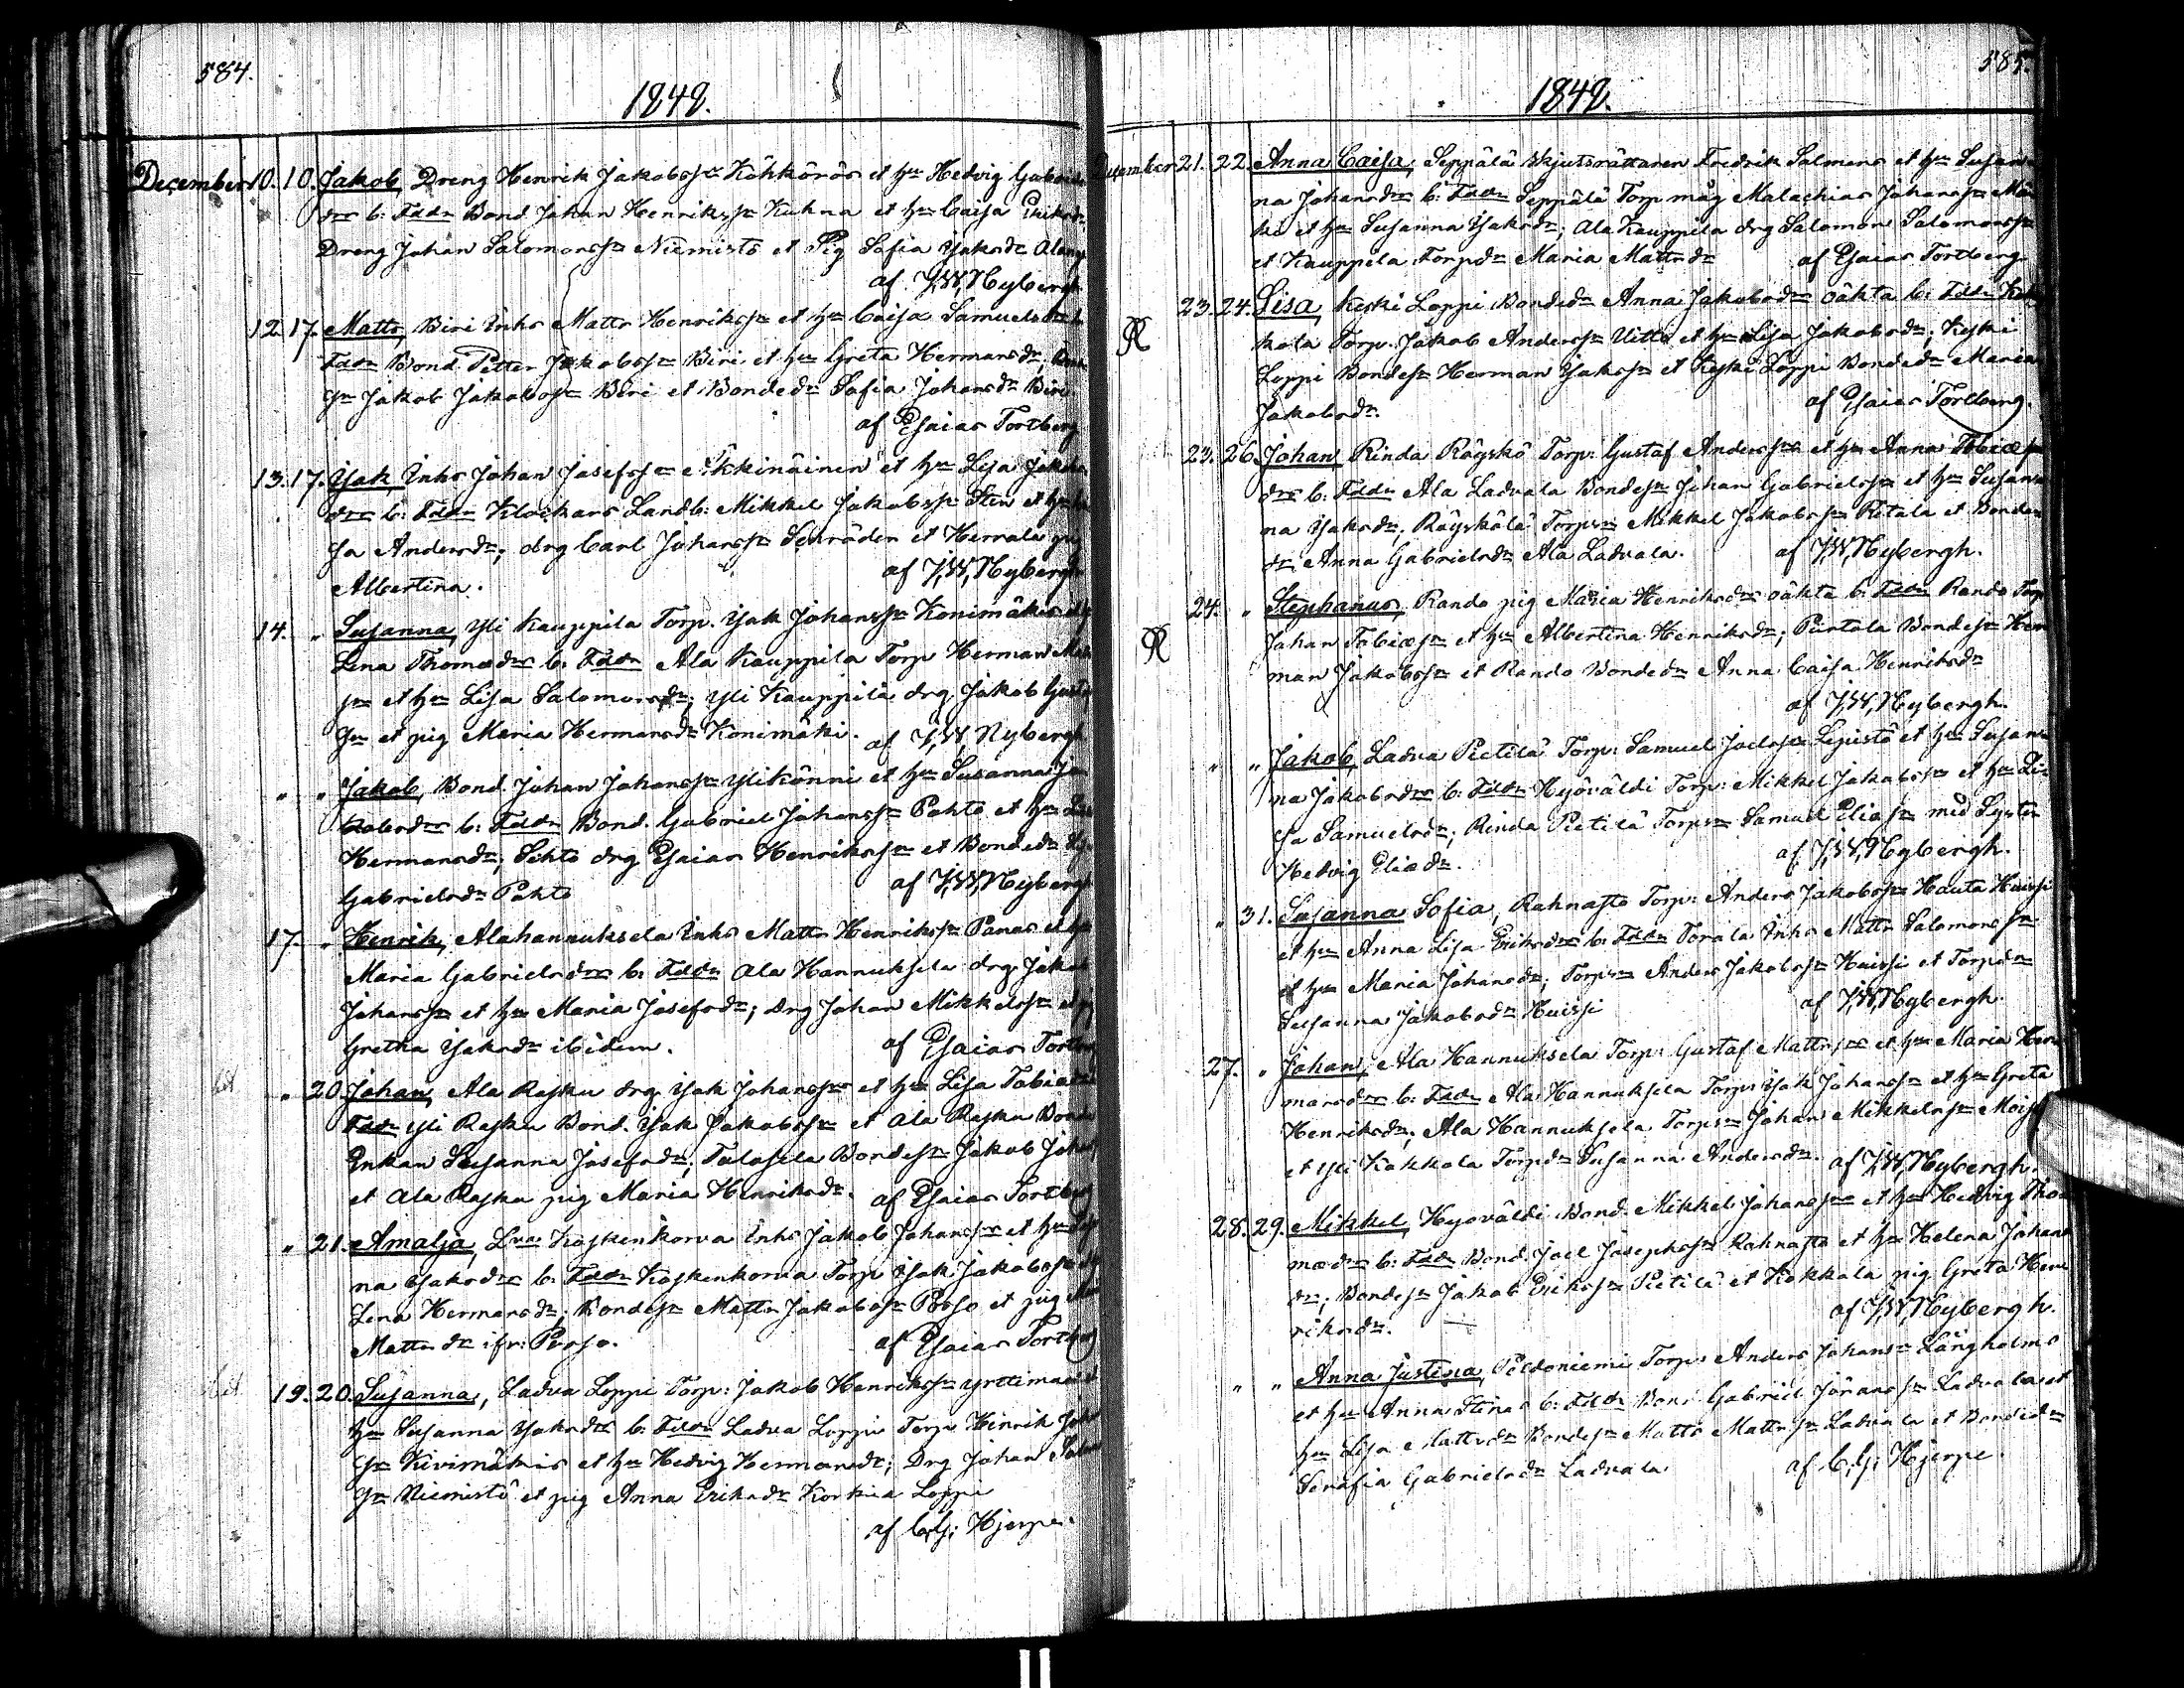 584.
1848.
December 10. 10. Jakob, Dreng Henrik Jakobss:n Köhkörös et h:u Hedvig Gabriels
d:rs b: Fddr Bond. Johan Henrikss:n Kuhna et h:u Caisa Eriksd:r
Dreng Johan Salomonss:n Niemistö et Pig Sofia Isaksd:r
af J,W, Nybergh
12. 17. Matts, Biri Inhs Matts Henrikss:n et h:u Caisa Samuelsd:rs
Fddr Bond Petter Jakobss:n Biri et h:u Greta Hermansd:r,
s:n Jakob Jakobss:n Biri et Bonded:r Sofia Johansd:r Biri
af Esaias Tortberg
13. 17. Isak, Inhs Johan Josefss:n et h:u Lisa
d:rs b: Fddr Klockars Landb: Mikkel Jakobss:n Sten et h:u
sa Andersd:r; drg Carl Johanss:n et Herrala pig
Albertina. af J,W, Nybergh
14. " Susanna, Yli Kauppila Torp. Isak Johanss:n Konimäki et h:u
Lena Thomæd:rs b: Fddr Ala Kauppila Torp Herman
s:n et h:u Lisa Salomonsd:r; Yli Kauppila drg Jakob
s:n et pig Maria Hermansd:r Konimäki. af J,W, Nybergh
" " Jakob, Bond. Johan Johanss:n Ylikönni et h:u Susanna Ja
kobsd:rs b: Fddr Bond. Gabriel Johanss:n Pohto et h:u
Hermansd:r; drg Esaias Henrikss:n et Bonded:r
Gabrielsd:r Pohto af J,W, Nybergh
17. " Henrik, Alahannuksela Inhs Matts Henrikss:n Panas et h:u
Maria Gabrielsd:rs b: Fddr Ala Hannuksela drg Jakob
Johanss:n et h:u Maria Josefsd:r; drg Johan Mikkelss:n et pig
Gretha Isaksd:r ibidem. af Esaias Tortberg
" 20. Johan, Ala Rasku drg Isak Johanss:n et h:u Lisa Tobiæd:rs
Fddr Yli Rasku Bond. Isak Jakobss:n et Ala Rasku Bonde
Enkan Susanna Josefsd:r; Talasela Bondes:n Jakob
et Ala Rasku pig Maria Henriksd:r. af Esaias Tortberg
" 21. Amalja, Koskenkorva Inhs Jakob Johanss:n et h:u
na Isaksd:rs b: Fddr Koskenkorva Torp Isak Jakobss:n et
Lena Hermansd:r; Bondes:n Matts Jakobss:n et pig
Mattsd:r ifr: af Esaias Tortberg
19. 20. Susanna, Ladva Loppi Torp: Jakob Henrikss:n et
h:u Susanna Isaksd:rs b: Fddr Ladva Loppi Torp Henrik
s:n Kivimäki et h:u Hedvig Hermansd:r; Drg Johan
s:n Niemistö et pig Anna Eriksd:r Korkia Loppi
af C,G: Hjerpe.
585.
1848.
December 21. 22. Anna Caisa, Seppälä Skjutsrättaren Fredrik Salmens et h:u Susan
na Johansd:rs b: Fddr Seppälä Torp måg Malachias Johanss:n
et h:u Susanna Isaksd:r; Ala Kauppila drg Salomon Salomonss:n
et Kauppila Torpd:r Maria Mattsd:r af Esaias Tortberg.
23. 24. Lisa, Keski Loppi Bonded:r Anna Jakobsd:rs oäkta b: Fddr Kok
kola Torp. Jakob Anderss:n Uitto et h:u Lisa Jakobsd:r; Keski
Loppi Bondes:n Herman Isakss:n et Keski Loppi Bonded:r Maria
Jakobsd:r. af Esaias Tortberg.
23. 26. Johan, Rinda Röyskö Torp: Gustaf Anderss:n et h:u Anna Tobiæ
d:rs b: Fddr Ala Ladvala Bondes:n Johan Gabrielss:n et h:u Susan
na Isaksd:r; Röyskölä Torps:n Mikkel Jakobss:n et Bonde
d:r Anna Gabrielsd:r Ala Ladvala. af J,W, Nybergh.
24. " Stephanus, Rando pig Maria Henriksd:rs oäkta b: Fddr Rando Torp
Johan Tobiæs:n et h:u Albertina Henriksd:r; Bondes:n Her
man Jakobss:n et Rando Bonded:r Anna Caisa Henriksd:r
af J,W, Nybergh.
" " Jakob, Ladva Pietilä Torp: Samuel Joelss:n Lepistö et h:u Susan
na Jakobsd:rs b: Fddr Hyövälti Torp: Mikkel Jakobss:n et h:u Li
sa Samuelsd:r; Rinda Pietilä Torps:n Samuel Eliæs:n med Syster
Hedvig Eliæd:r. af J,W, Nybergh.
" 31. Susanna Sofia, Rahnasto Torp: Anders Jakobss:n Hauta Huissi
et h:u Anna Lisa Eriksd:rs b: Fddr Torala Inhs Matts Salomonss:n
et h:u Maria Johansd:r; Torps:n Anders Jakobss:n Huissi et Torpd:r
Susanna Jakobsd:r Huissi af J,W, Nybergh.
27. " Johan, Ala Hannuksela Torp: Gustaf Mattss:n et h:u Maria Her
mansd:rs b: Fddr Ala Hannuksela Torp: Isak Johanss:n et h:u Greta
Henriksd:r; Ala Hannuksela Torps:n Johan Mikkelss:n
et Yli Kokkola Torpd:r Susanna Andersd:r. af J,W, Nybergh.
28. 29. Mikkel, Hyövälti Bond. Mikkel Johanss:n et h:u Hedvig Tho
mæd:rs b: Fddr Bond. Joel Josephss:n Rahnasto et h:u Helena Johans
d:r; Bondes:n Jakob Erikss:n Pietilä et Kokkola pig Greta Hen
riksd:r. af J,W, Nybergh.
" " Anna Justina, Peldoniemi Torp: Anders Johans:n Långholms
et h:u Anna Stinas b: Fddr Bond Gabriel Jöranss:n Ladvala et
h:u Lisa Mattsd:r Bondes:n Matts Mattss:n Ladvala et Bonded:r
Serafia Gabrielsd:r Ladvala. af C,G: Hjerpe.